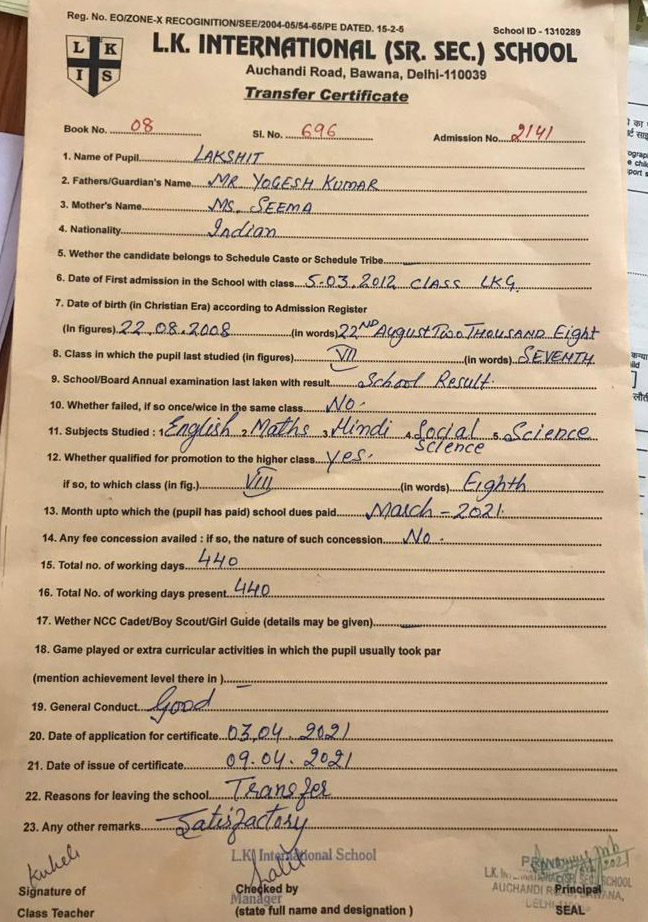 Reg. No. EO/ZONE-X RECOGINITION/SEE/2004-05/54-65/PE DATED. 15-2-5
School ID - 1310289
L K I S
L.K. INTERNATIONAL (SR. SEC.) SCHOOL
Auchandi Road, Bawana, Delhi-110039
Transfer Certificate
Book No. 08 Sl. No. 696 Admission No. 2141
1. Name of Pupil LAKSHIT
2. Fathers/Guardian's Name MR YOGESH KUMAR
3. Mother's Name MS. SEEMA
4. Nationality Indian
5. Wether the candidate belongs to Schedule Caste or Schedule Tribe —
6. Date of First admission in the School with class 5-03.2012 CLASS LKG.
7. Date of birth (in Christian Era) according to Admission Register
(In figures) 22.08.2008 (in words) 22ND August Two THOUSAND Eight
8. Class in which the pupil last studied (in figures) VII (in words) SEVENTH
9. School/Board Annual examination last laken with result School Result.
10. Whether failed, if so once/wice in the same class No.
11. Subjects Studied : 1 English 2 Maths 3 Hindi 4. Social Science 5. Science
12. Whether qualified for promotion to the higher class yes.
if so, to which class (in fig.) VIII (in words) Eighth
13. Month upto which the (pupil has paid) school dues paid March - 2021.
14. Any fee concession availed : if so, the nature of such concession No.
15. Total no. of working days 440
16. Total No. of working days present 440
17. Wether NCC Cadet/Boy Scout/Girl Guide (details may be given) —
18. Game played or extra curricular activities in which the pupil usually took par
(mention achievement level there in ) —
19. General Conduct Good
20. Date of application for certificate 03.04.2021
21. Date of issue of certificate 09.04.2021
22. Reasons for leaving the school Transfer
23. Any other remarks Satisfactory
L.K. International School
Manager
Signature of
Class Teacher
Checked by
(state full name and designation )
AUCHANDI BAWANA,
Principal
SEAL